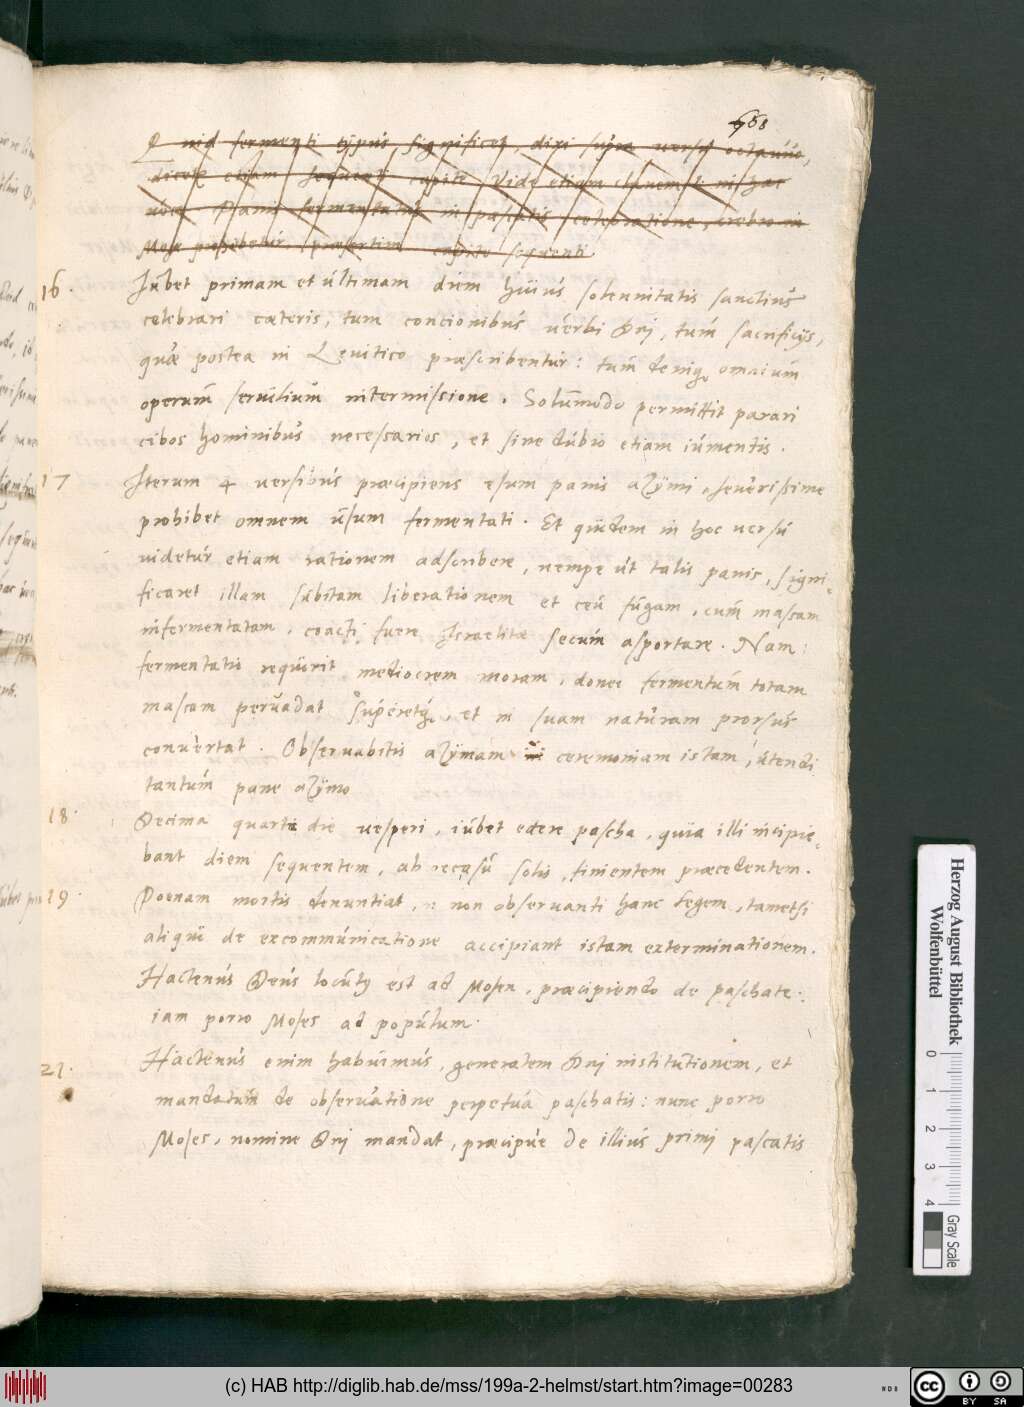 668
Quid fermenti typus significet, dixi supra versu octauo,
dicetur etiam sequenti capite. Vide etiam clauem in hac
uoce. Panis fermentatus in paschatis celebratione, crebro in
Mose prohibetur, præsertim capite sequenti
16. Iubet primam et ultimam diem huius solennitatis sanctius
celebrari cæteris, tum concionibus uerbi Dnj, tum sacrificijs,
quæ postea in Leuitico præscribentur: tum deniq, omnium
operum seruilium intermissione. Solummodo permittit parari
cibos hominibus necessarios, et sine dubio etiam iumentis.
17 Iterum 4 versibus præcipiens esum panis azymi, seuerissime
prohibet omnem usum fermentati. Et quidem in hoc uersu
uidetur etiam rationem adscribere, nempe ut talis panis, signi-
ficaret illam subitam liberationem et ceu fugam, cum massam
infermentatam, coacti fuere Israelitæ secum asportare. Nam
fermentatio requirit mediocrem moram, donec fermentum totam
massam peruadat superetq, et in suam naturam prorsus
conuertat. Obseruabitis azymam ceremoniam istam, utendi
tantum pane azymo
18. Decima quarta die vesperi, iubet edere pascha, quia illi incipie-
bant diem sequentem, ab occasu solis, finientem præcedentem.
19. Poenam mortis denuntiat, non obseruanti hanc legem, tametsi
aliqui de excommunicatione accipiant istam exterminationem.
Hactenus Deus locuty est ad Mosen, præcipiendo de paschate:
iam porro Moses ad populum.
21. Hactenus enim habuimus, generalem Dnj institutionem, et
mandatum de obseruatione perpetua paschatis: nunc porro
Moses, nomine Dnj mandat, præcipue de illius primj pascatis
Herzog August Bibliothek
Wolfenbüttel
0 1 2 3 4
Gray Scale
(c) HAB http://diglib.hab.de/mss/199a-2-helmst/start.htm?image=00283
cc BY SA